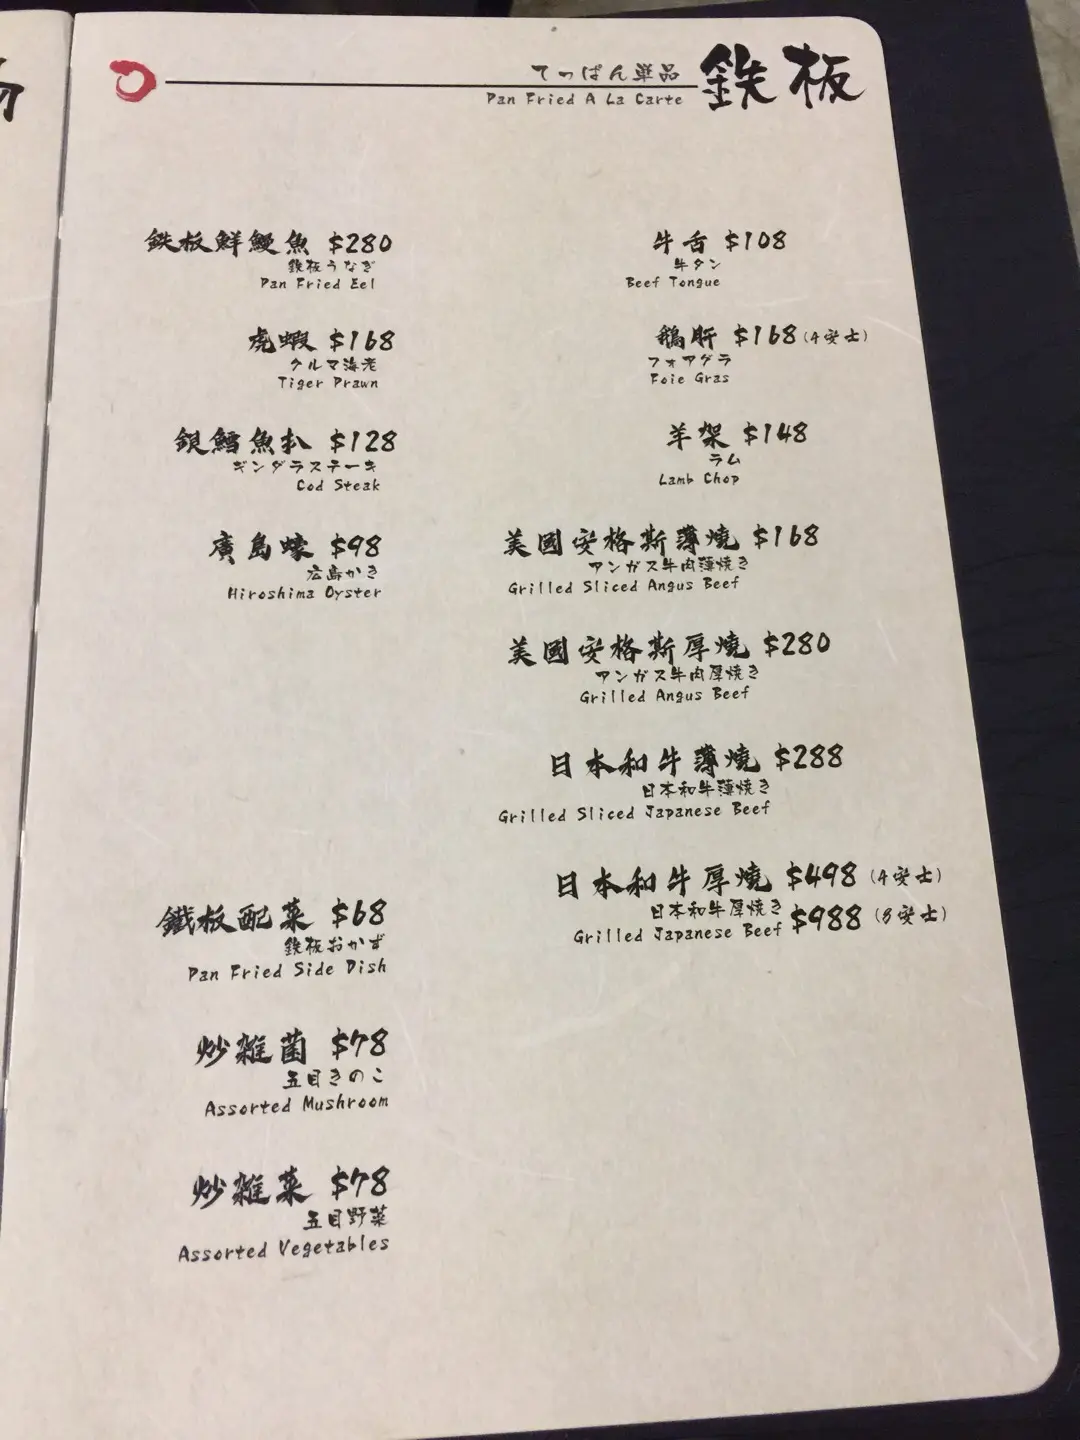 てっぱん単品
Pan Fried A La Carte
鉄板
鉄板鮮鰻魚 $280
鉄板うなぎ
Pan Fried Eel
虎蝦 $168
クルマ海老
Tiger Prawn
銀鱈魚扒 $128
ギンダラステーキ
Cod Steak
廣島蠔 $98
広島かき
Hiroshima Oyster
鐵板配菜 $68
鉄板おかず
Pan Fried Side Dish
炒雑菌 $78
五目きのこ
Assorted Mushroom
炒雑菜 $78
五目野菜
Assorted Vegetables
牛舌 $108
牛タン
Beef Tongue
鵝肝 $168 (4安士)
フォアグラ
Foie Gras
羊架 $148
ラム
Lamb Chop
美國安格斯薄燒 $168
アンガス牛肉薄焼き
Grilled Sliced Angus Beef
美國安格斯厚燒 $280
アンガス牛肉厚焼き
Grilled Angus Beef
日本和牛薄燒 $288
日本和牛薄焼き
Grilled Sliced Japanese Beef
日本和牛厚燒 $498 (4安士)
日本和牛厚焼き $988 (8安士)
Grilled Japanese Beef